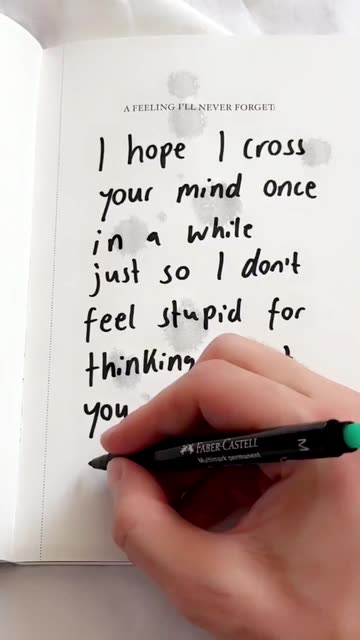 A FEELING I'LL NEVER FORGET:
I hope I cross
your mind once
in a while
just so I don't
feel stupid for
thinking
you
FABER-CASTELL M
Multimark permanent